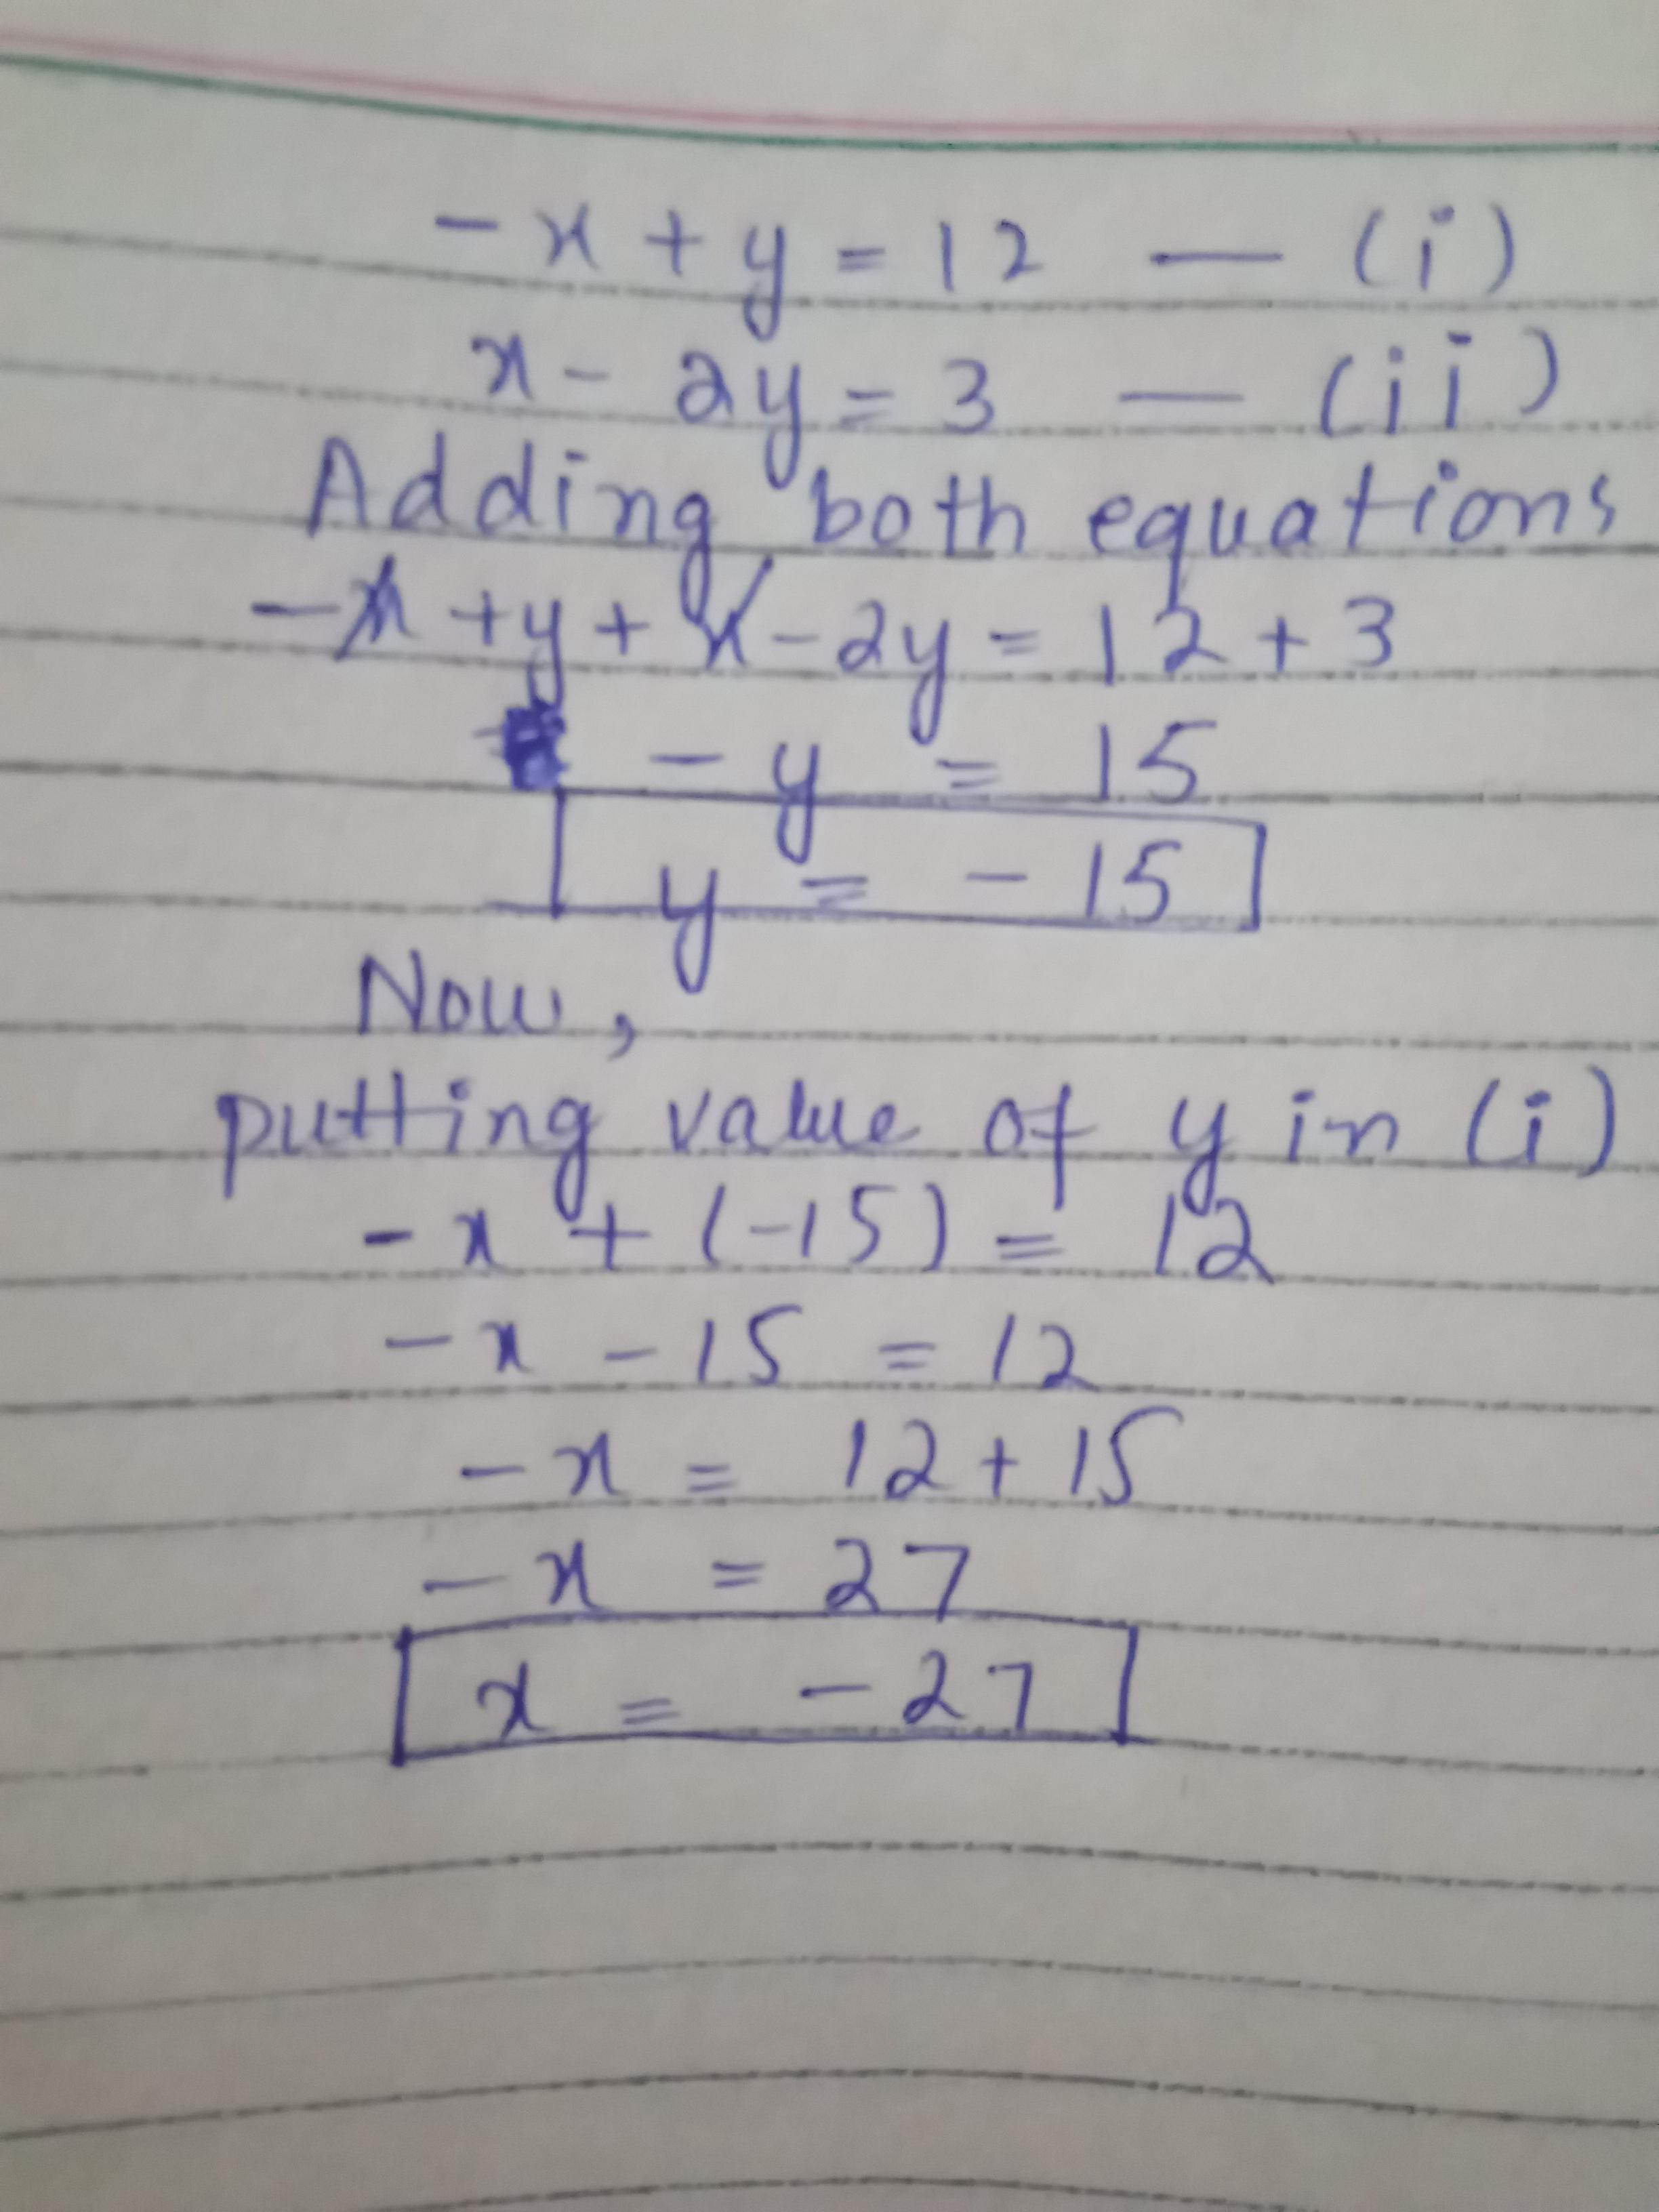 -x + y = 12 — (i)
x - 2y = 3 — (ii)
Adding both equations
-x + y + x - 2y = 12 + 3
-y = 15
y = -15
Now,
putting value of y in (i)
-x + (-15) = 12
-x - 15 = 12
-x = 12 + 15
-x = 27
x = -27